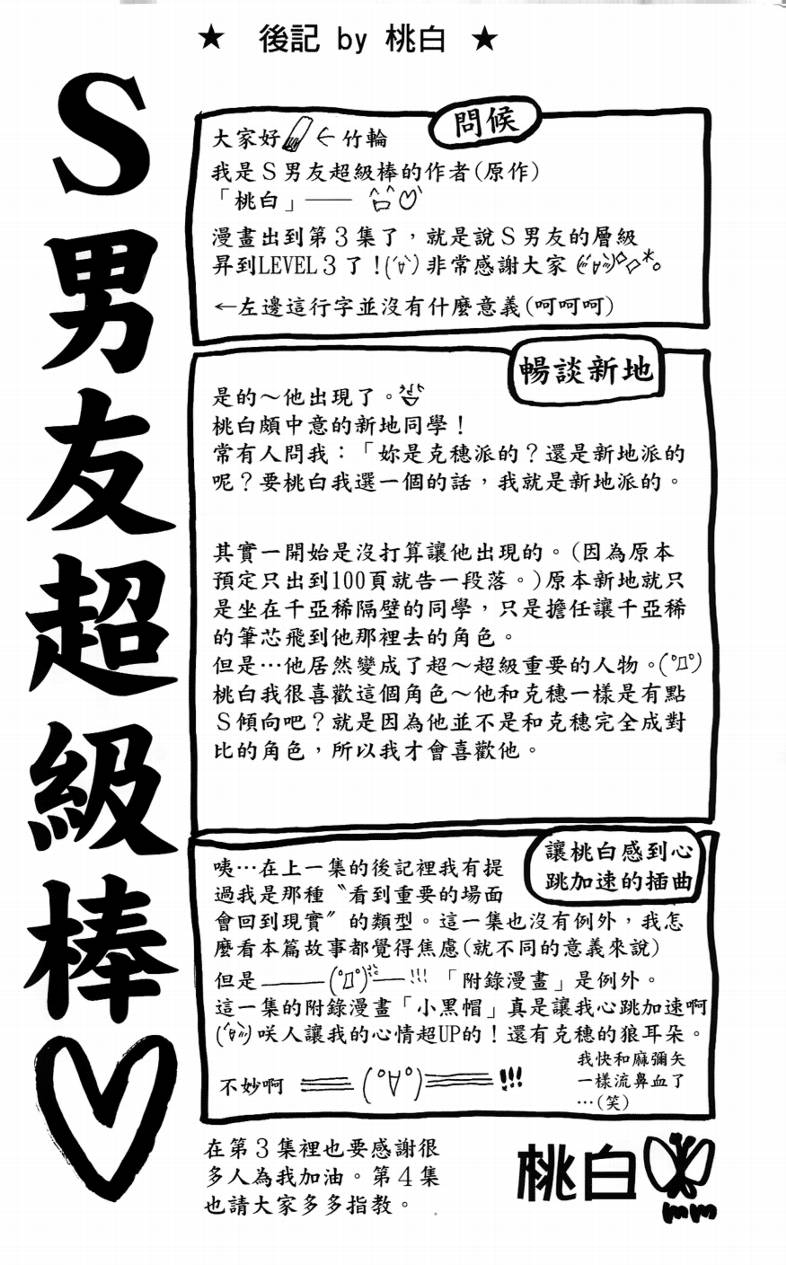 ★ 後記 by 桃白 ★
S男友超級棒♡
問候
大家好 ←竹輪
我是S男友超級棒的作者(原作)
「桃白」——
漫畫出到第3集了，就是說S男友的層級
昇到LEVEL3了！(´∀`)非常感謝大家
←左邊這行字並沒有什麼意義(呵呵呵)
暢談新地
是的～他出現了。
桃白頗中意的新地同學！
常有人問我：「妳是克穗派的？還是新地派的
呢？要桃白我選一個的話，我就是新地派的。
其實一開始是沒打算讓他出現的。(因為原本
預定只出到100頁就告一段落。)原本新地就只
是坐在千亞稀隔壁的同學，只是擔任讓千亞稀
的筆芯飛到他那裡去的角色。
但是…他居然變成了超～超級重要的人物。(ﾟДﾟ)
桃白我很喜歡這個角色～他和克穗一樣是有點
S傾向吧？就是因為他並不是和克穗完全成對
比的角色，所以我才會喜歡他。
讓桃白感到心
跳加速的插曲
咦…在上一集的後記裡我有提
過我是那種〝看到重要的場面
會回到現實〞的類型。這一集也沒有例外，我怎
麼看本篇故事都覺得焦慮(就不同的意義來說)
但是——(ﾟДﾟ)—!!!「附錄漫畫」是例外。
這一集的附錄漫畫「小黑帽」真是讓我心跳加速啊
咲人讓我的心情超UP的！還有克穗的狼耳朵。
不妙啊 ===(ﾟ∀ﾟ)===!!!
我快和麻彌矢
一樣流鼻血了
…(笑)
在第3集裡也要感謝很
多人為我加油。第4集
也請大家多多指教。
桃白